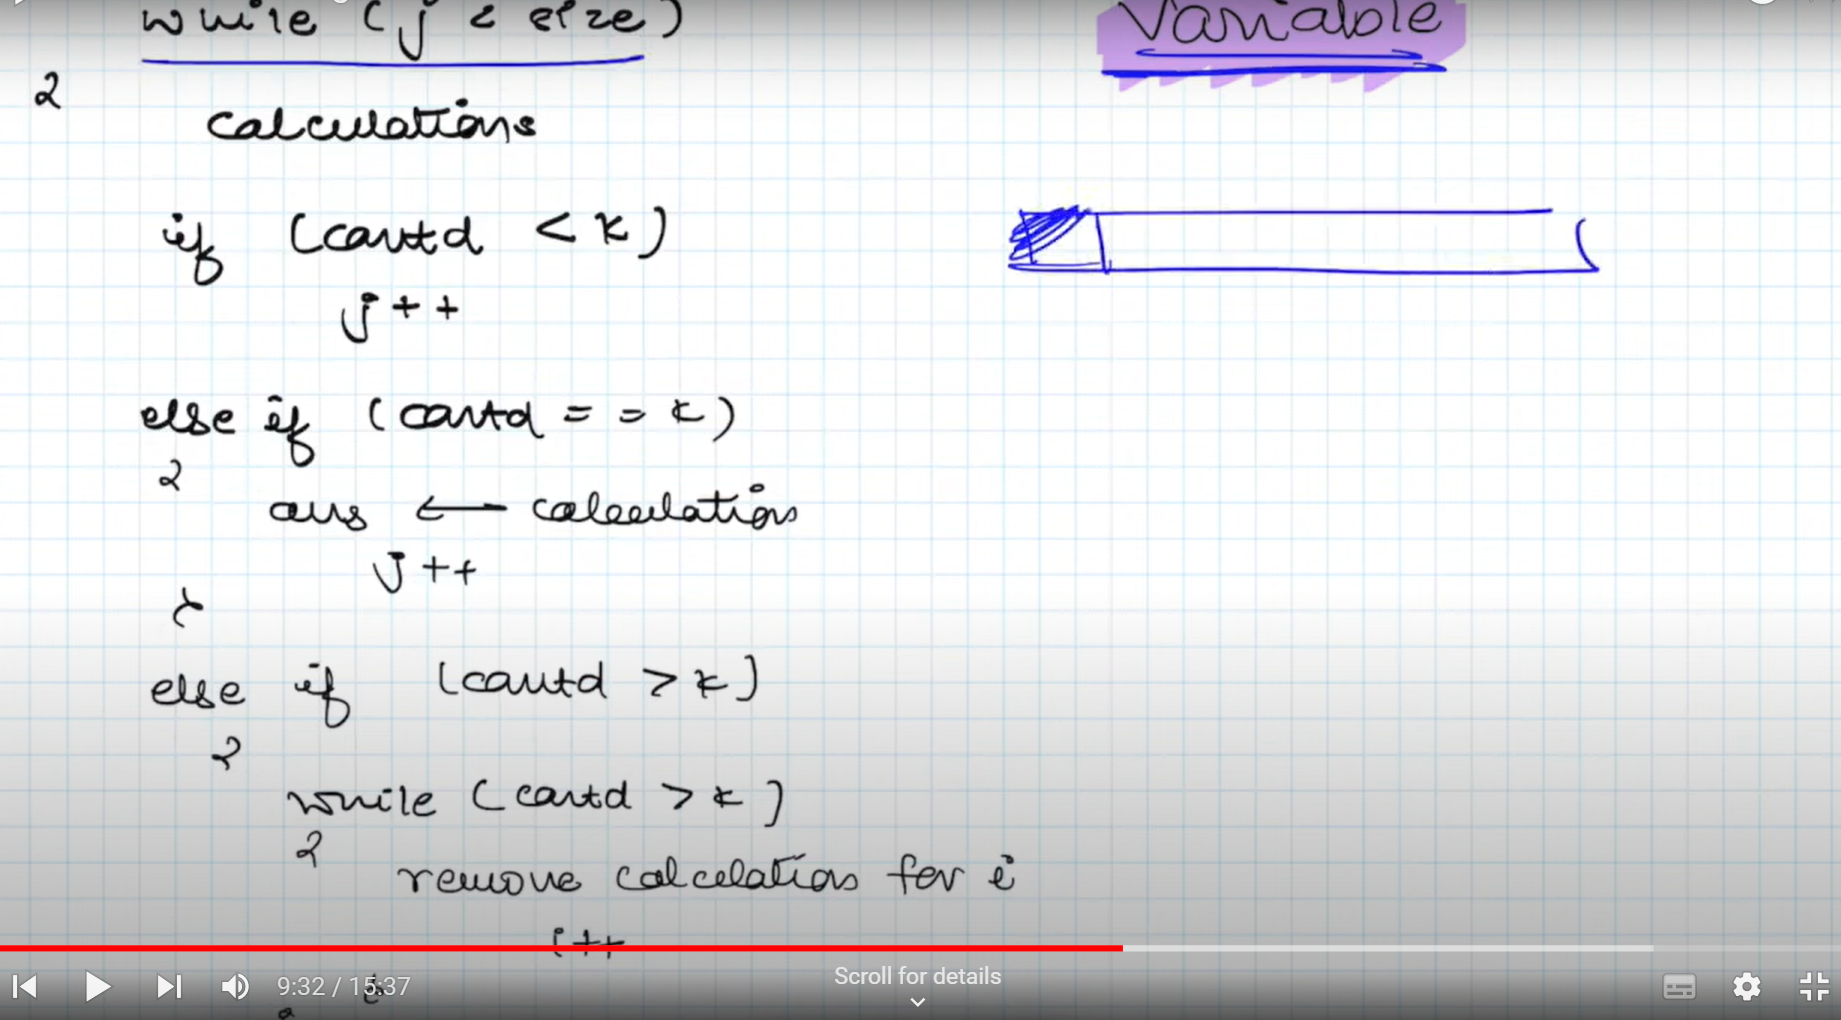 while (j < size)
Variable
{
calculations
if (condtd < k)
j++
else if (condtd == k)
{
ans ← calculation
j++
}
else if (condtd > k)
{
while (condtd > k)
{
remove calculation for i
i++
9:32 / 15:37
Scroll for details